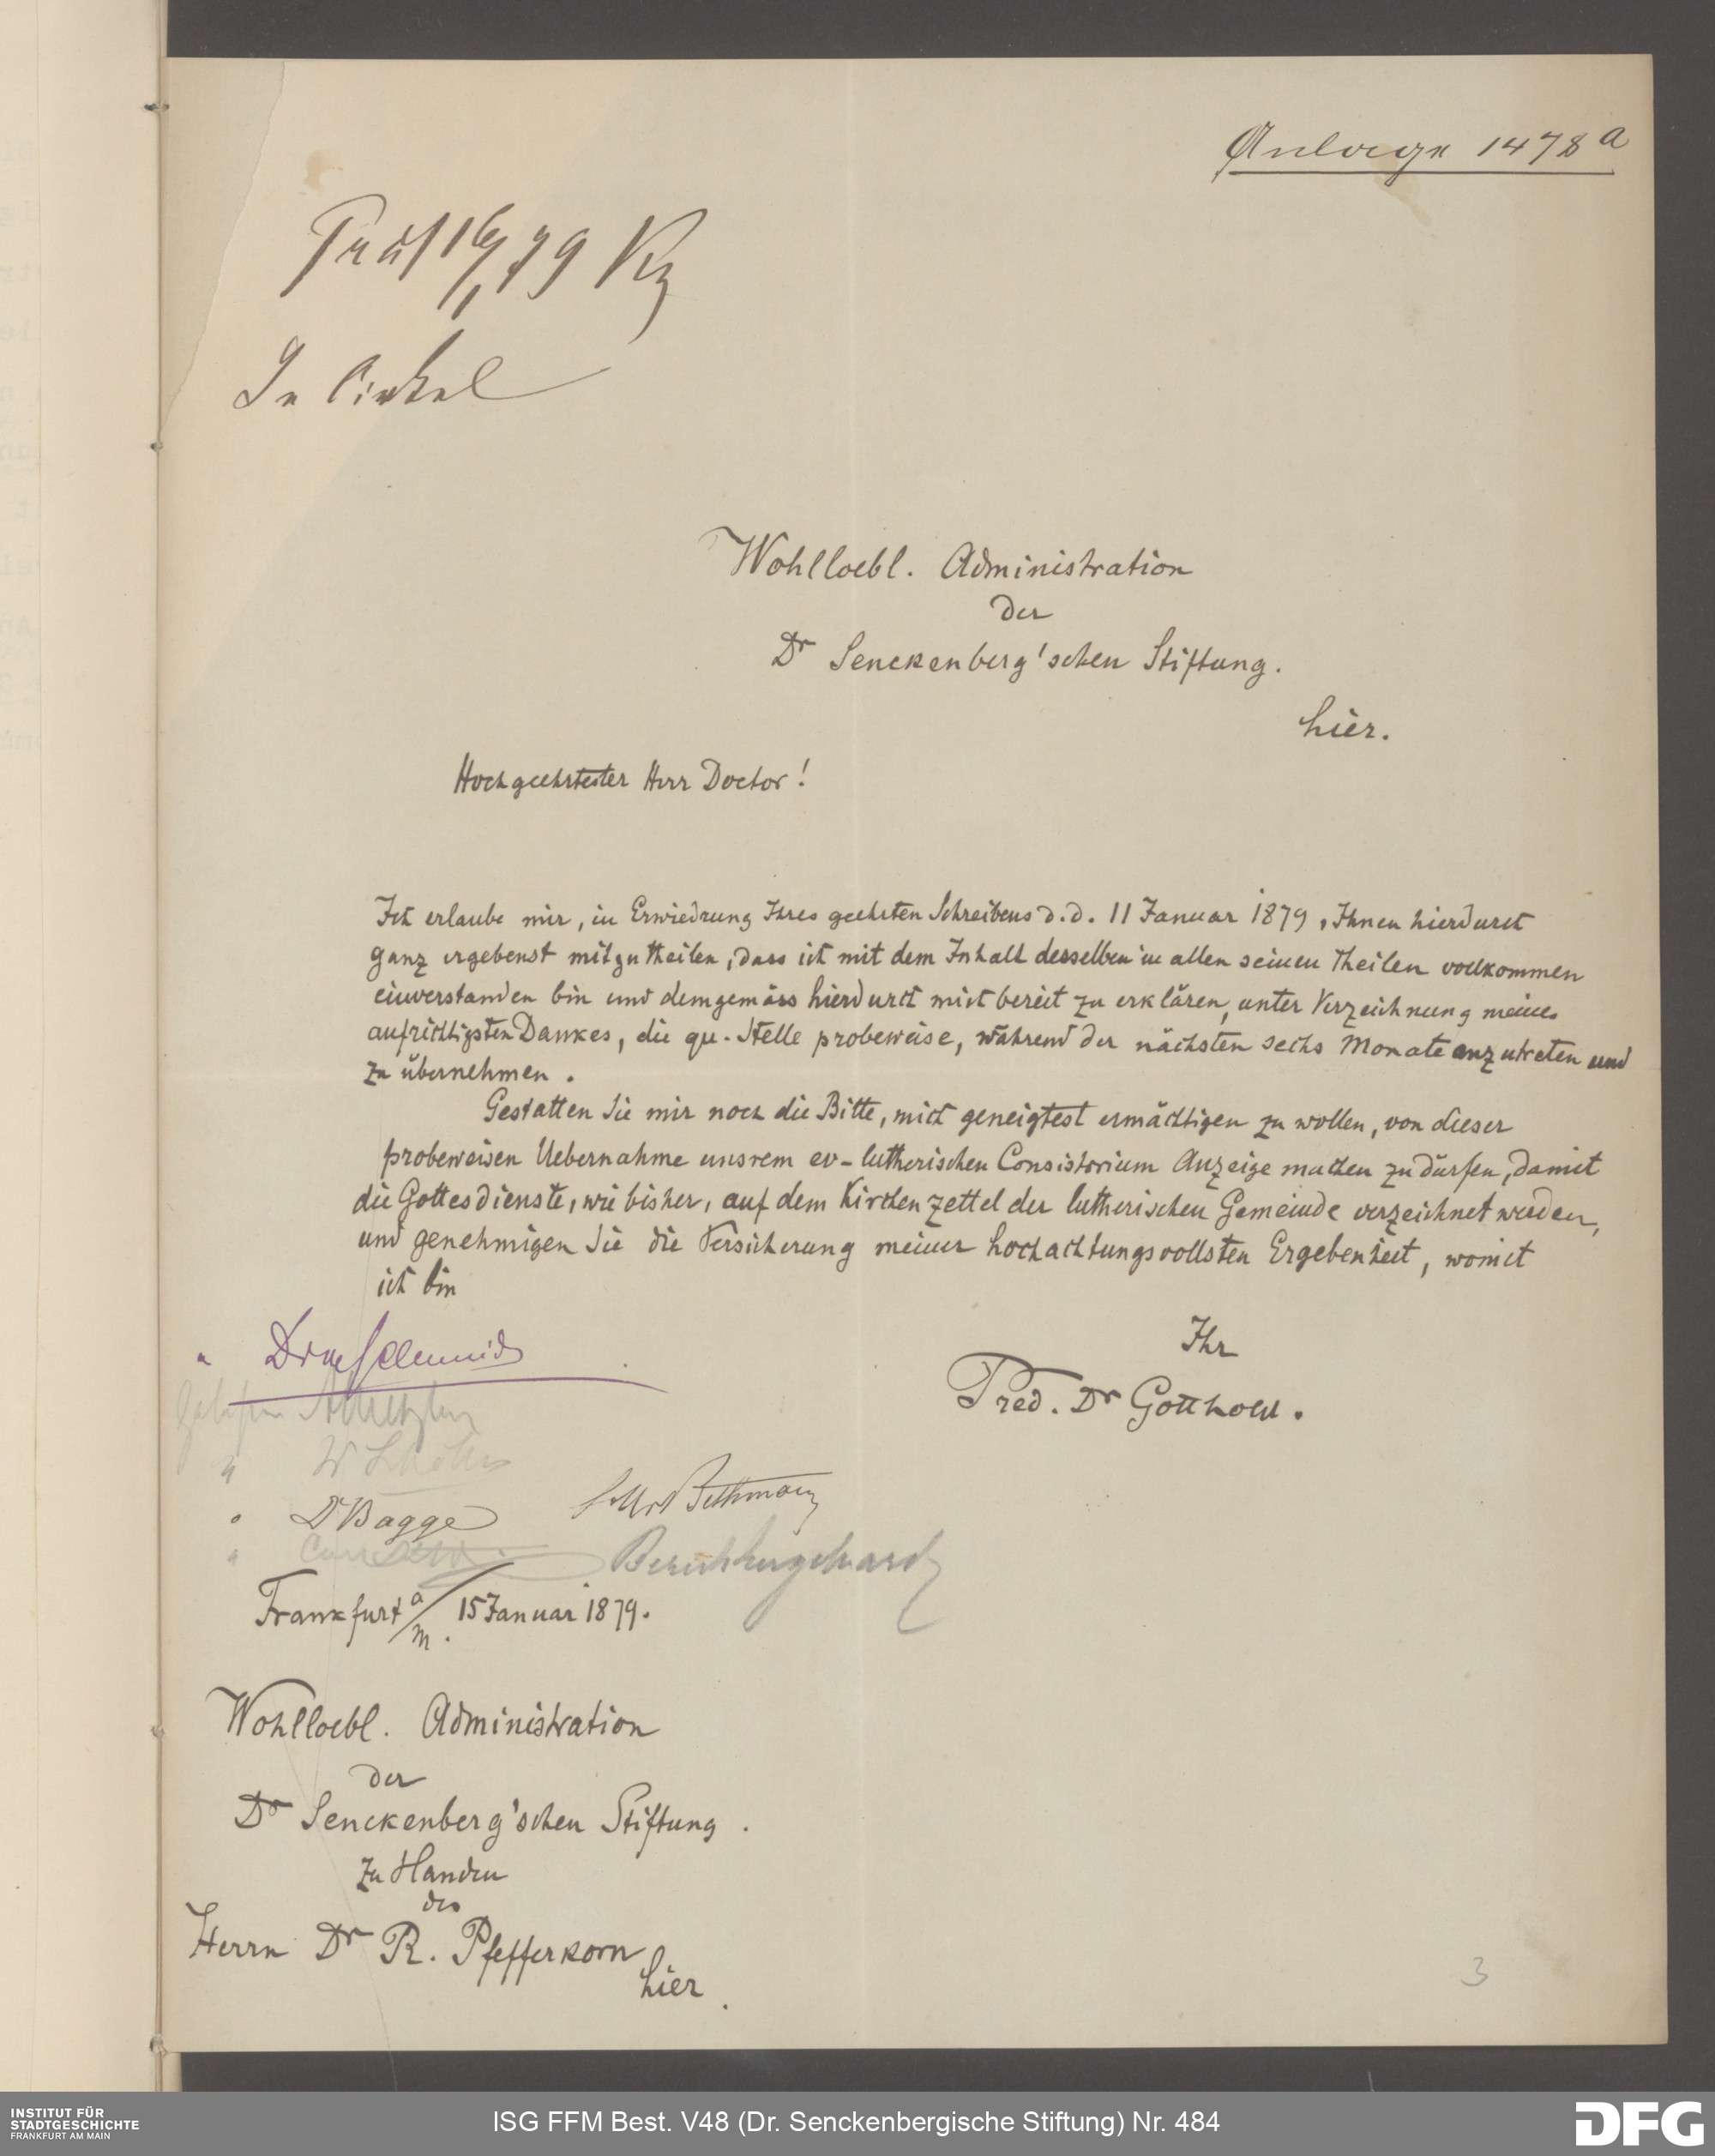 Anlage 1478 a
Präs 16/1 79
In Cirkel
Wohlloebl. Administration
der
Dr Senckenberg'schen Stiftung.
hier.
Hochgeehrtester Herr Doctor!
Ich erlaube mir, in Erwiedrung Ihres geehrten Schreibens d.d. 11 Januar 1879, Ihnen hierdurch
ganz ergebenst mitzutheilen, dass ich mit dem Inhalt desselben in allen seinen Theilen vollkommen
einverstanden bin und demgemäss hierdurch mich bereit zu erklären, unter Verzeichnung meines
aufrichtigsten Dankes, die qu. Stelle probeweise, während der nächsten sechs Monate anzutreten und
zu übernehmen.
Gestatten Sie mir noch die Bitte, mich geneigtest ermächtigen zu wollen, von dieser
probeweisen Uebernahme unsrem ev-lutherischen Consistorium Anzeige machen zu dürfen, damit
die Gottesdienste, wie bisher, auf dem Kirchenzettel der lutherischen Gemeinde verzeichnet werden,
und genehmigen Sie die Versicherung meiner hochachtungsvollsten Ergebenheit, womit
ich bin
Ihr
Pred. Dr Gotthold.
Schmidt
gelesen
Dr Bagge
Bethmann
Frankfurt a/m. 15 Januar 1879.
Wohlloebl. Administration
der
Dr Senckenberg'schen Stiftung.
zu Handen
des
Herrn Dr R. Pfefferkorn
hier.
3
INSTITUT FÜR
STADTGESCHICHTE
FRANKFURT AM MAIN
ISG FFM Best. V48 (Dr. Senckenbergische Stiftung) Nr. 484
DFG